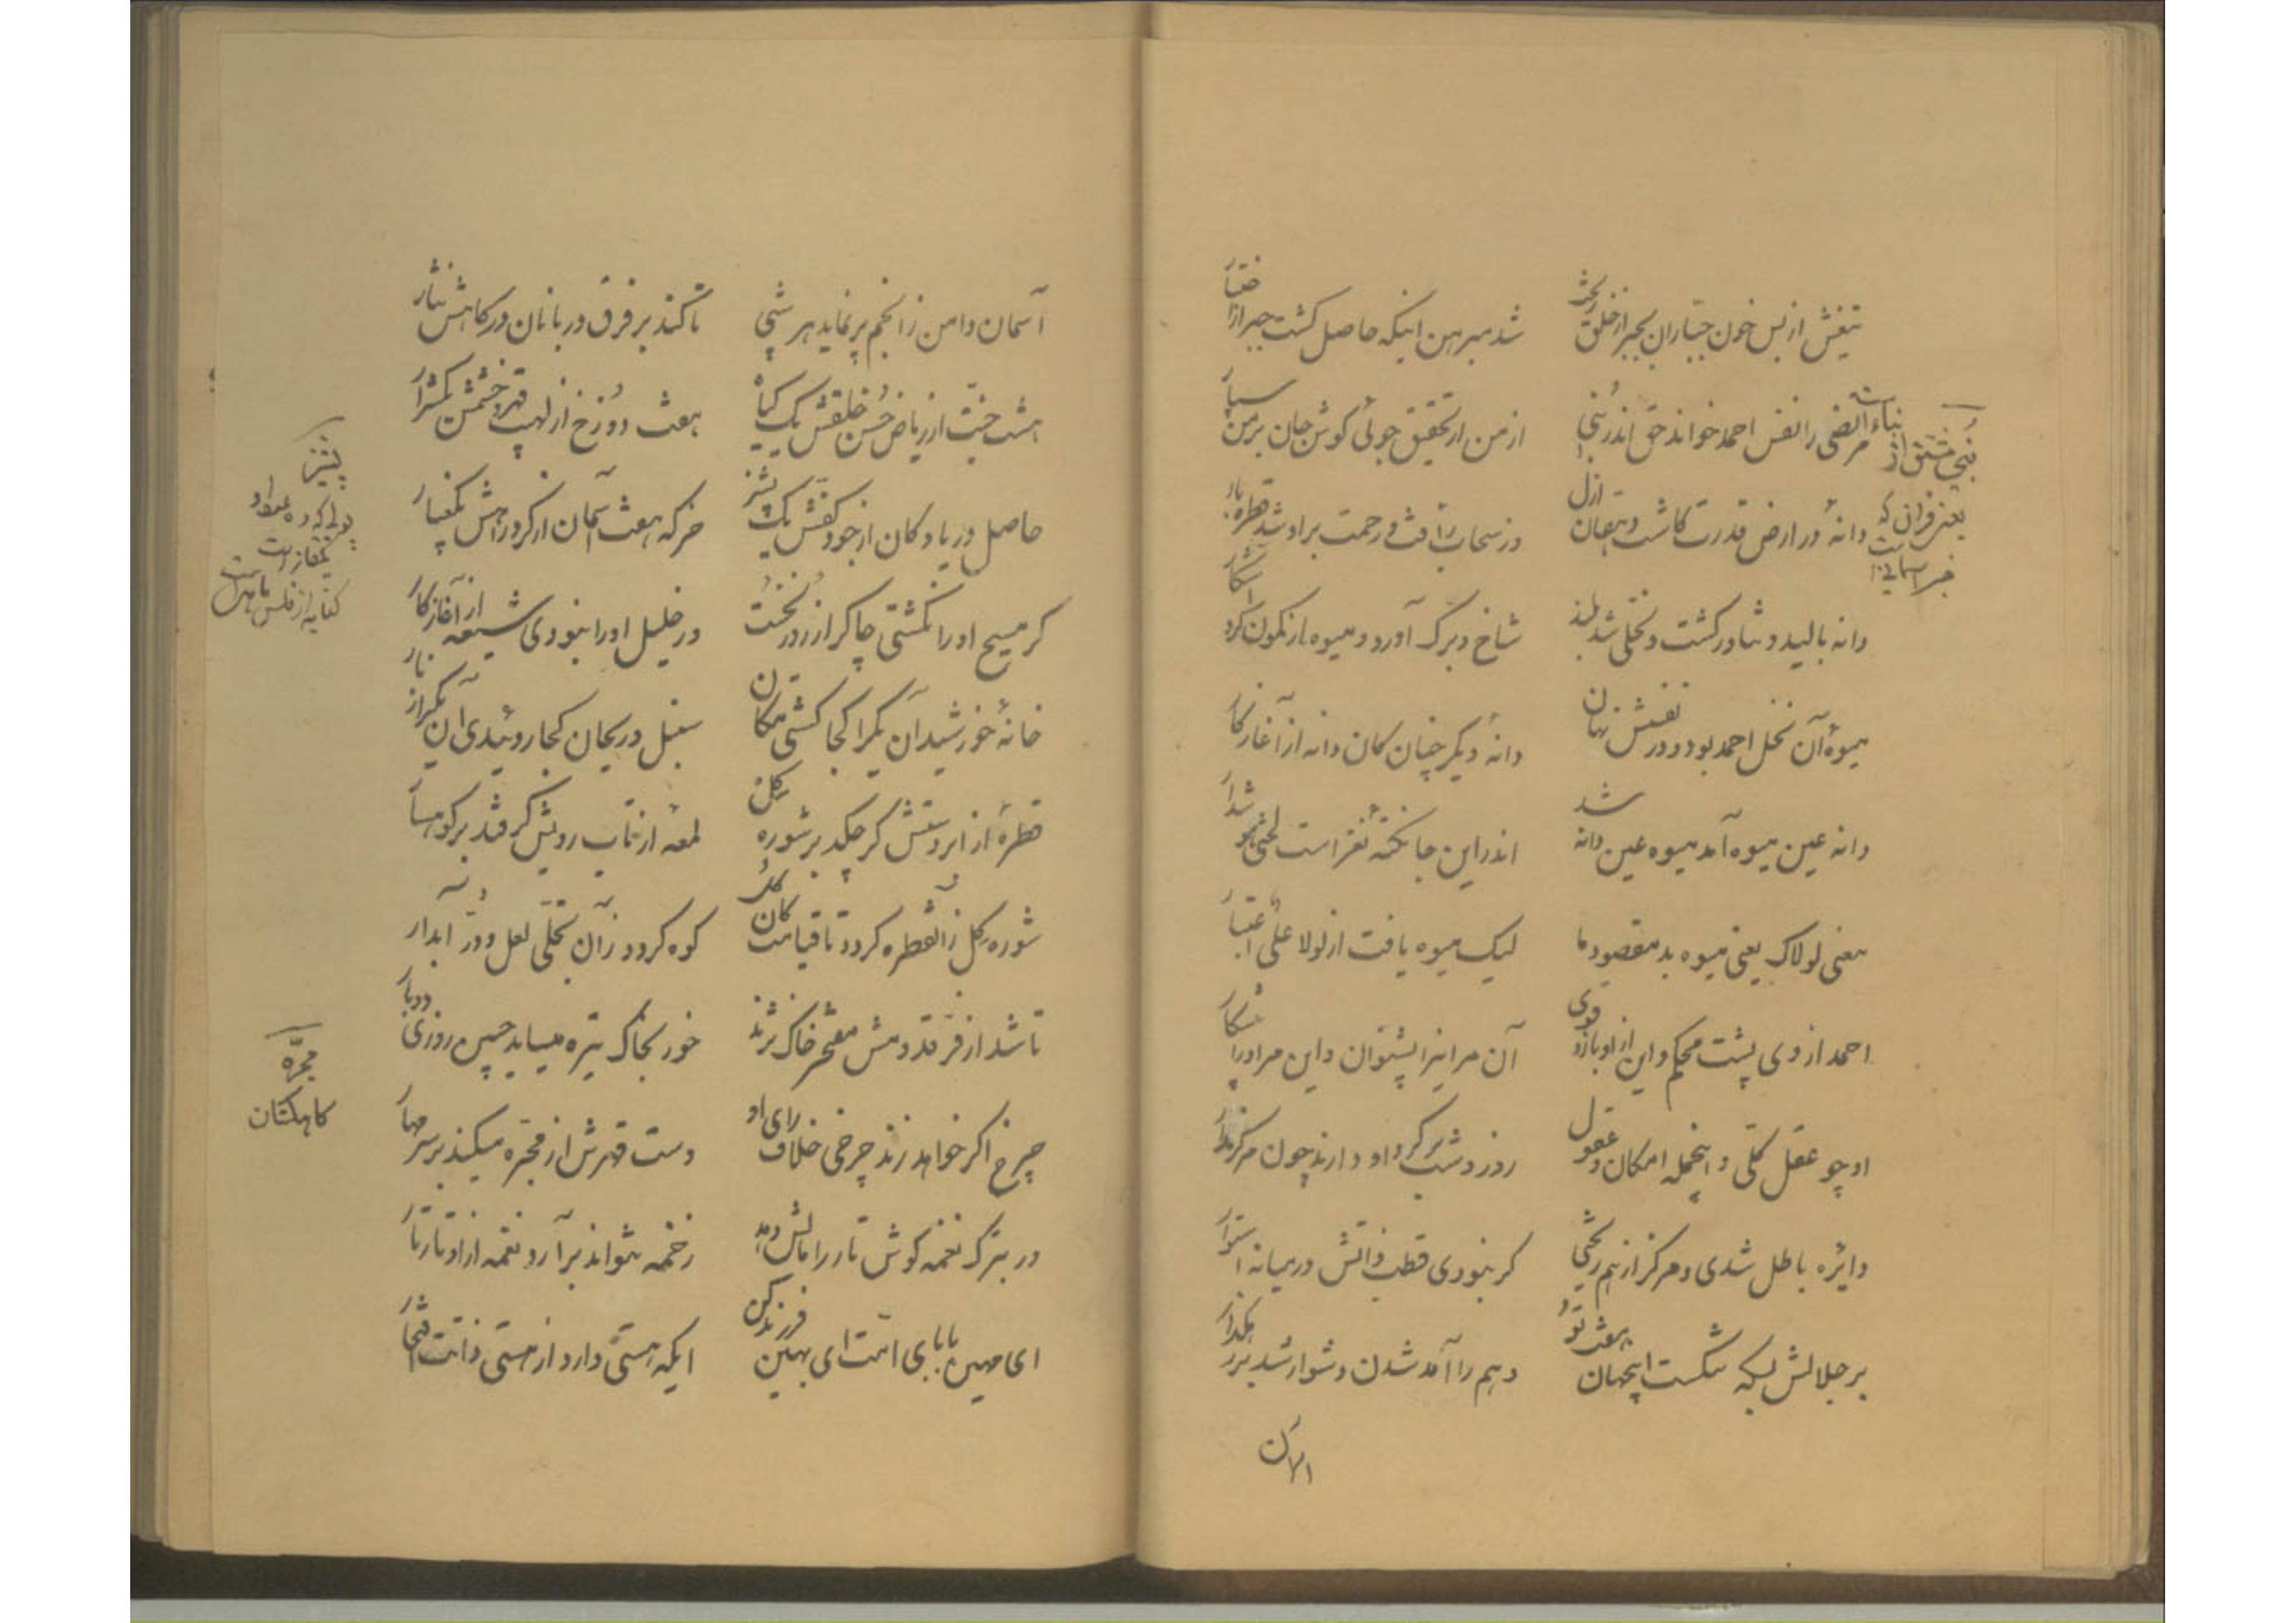 تیغش از بس خون جباران بجبر از خلق ریخت
شد مبرهن اینکه حاصل گشت جبر از اختیار
مرتضی را نفس احمد خواند حق اندر نبی
از من ار تحقیق جوئی گوش جان بر من سپار
دانهٔ در ارض قدرت کاشت دهقان ازل
وز سحاب رأفت و رحمت بر او شد قطره بار
دانه بالید و تناور گشت و نخلی شد بلند
شاخ و برگ آورد و میوه از نمون کرد آشکار
میوهٔ آن نخل احمد بود و در نفسش نهان
دانهٔ دیگر چنان کان دانه از آغاز کار
دانه عین میوه آمد میوه عین دانه شد
اندر این جا نکته نغز است لختی هوشدار
معنی لولاک یعنی میوه بد مقصود ما
لیک میوه یافت از لولا علی اعتبار
احمد از وی پشت محکم و این از او بازو قوی
آن مر اینرا پشتوان و این مر او را
او چو عقل کلّی و اینجمله امکان و عقول
روز و شب بر گرد او دارند چون مرکز مدار
دایره باطل شدی و مرکز از هم ریختی
گر نبودی قطب ذاتش در میانه استوار
بر جلالش بسکه تنگست اینجهان هفت تو
وهم را آمد شدن دشوار شد بر رهگذار
نبی مشتق از نباء است
یعنی قرآن که
خبر آسمانی است
آسمان دامن ز انجم پر نماید هر شبی
تا کند بر فرق دربانان درگاهش نثار
هشت جنّت از ریاض حُسن خلقش یک گیاه
هفت دوزخ از لهیب قهر و خشمش یک شرار
حاصل دریا و کان از جود کفّش یک پشیز
خرگه هفت آسمان از گرد راهش یک غبار
گر مسیح او را نگشتی چاکر از روز نخست
ور خلیل او را نبودی شیعه از آغاز کار
خانهٔ خورشید آن یکرا کجا گشتی مکان
سنبل و ریحان کجا روئیدی این یکرا ز نار
قطرهٔ از ابر دستش گر چکد بر شوره گل
لمعهٔ از تاب رویش گر فتد بر کوهسار
شوره گل زآن قطره گردد تا قیامت کان گل
کوه گردد زآن تجلّی لعل و درّ آبدار
تا شد از فرّ قدومش مفتخر خاک نژند
خور بخاک تیره میساید جبین روزی دو بار
چرخ اگر خواهد زند چرخی خلاف رای او
دست قهرش از مجرّه میکند بر سر مهار
ور بترک نغمه گوش تار را مالش دهد
زخمه نتواند برآرد نغمه از اوتار تار
ای مهین بابای امّت ای بهین فرزند کن
ایکه هستی دارد از هستی ذاتت افتخار
پشیز
مجرّه
کاهکشان